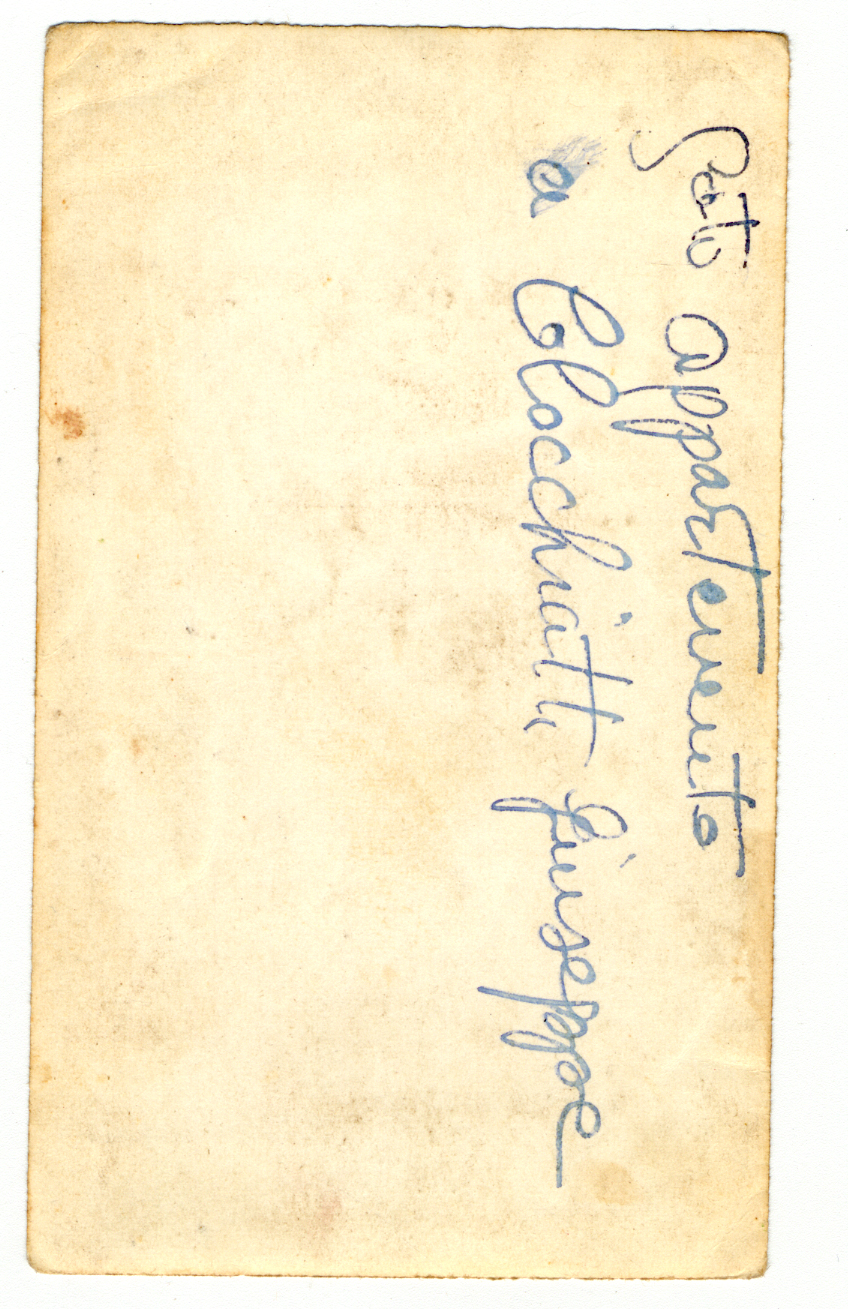 appartenento
a Clocchiatti Giuseppe